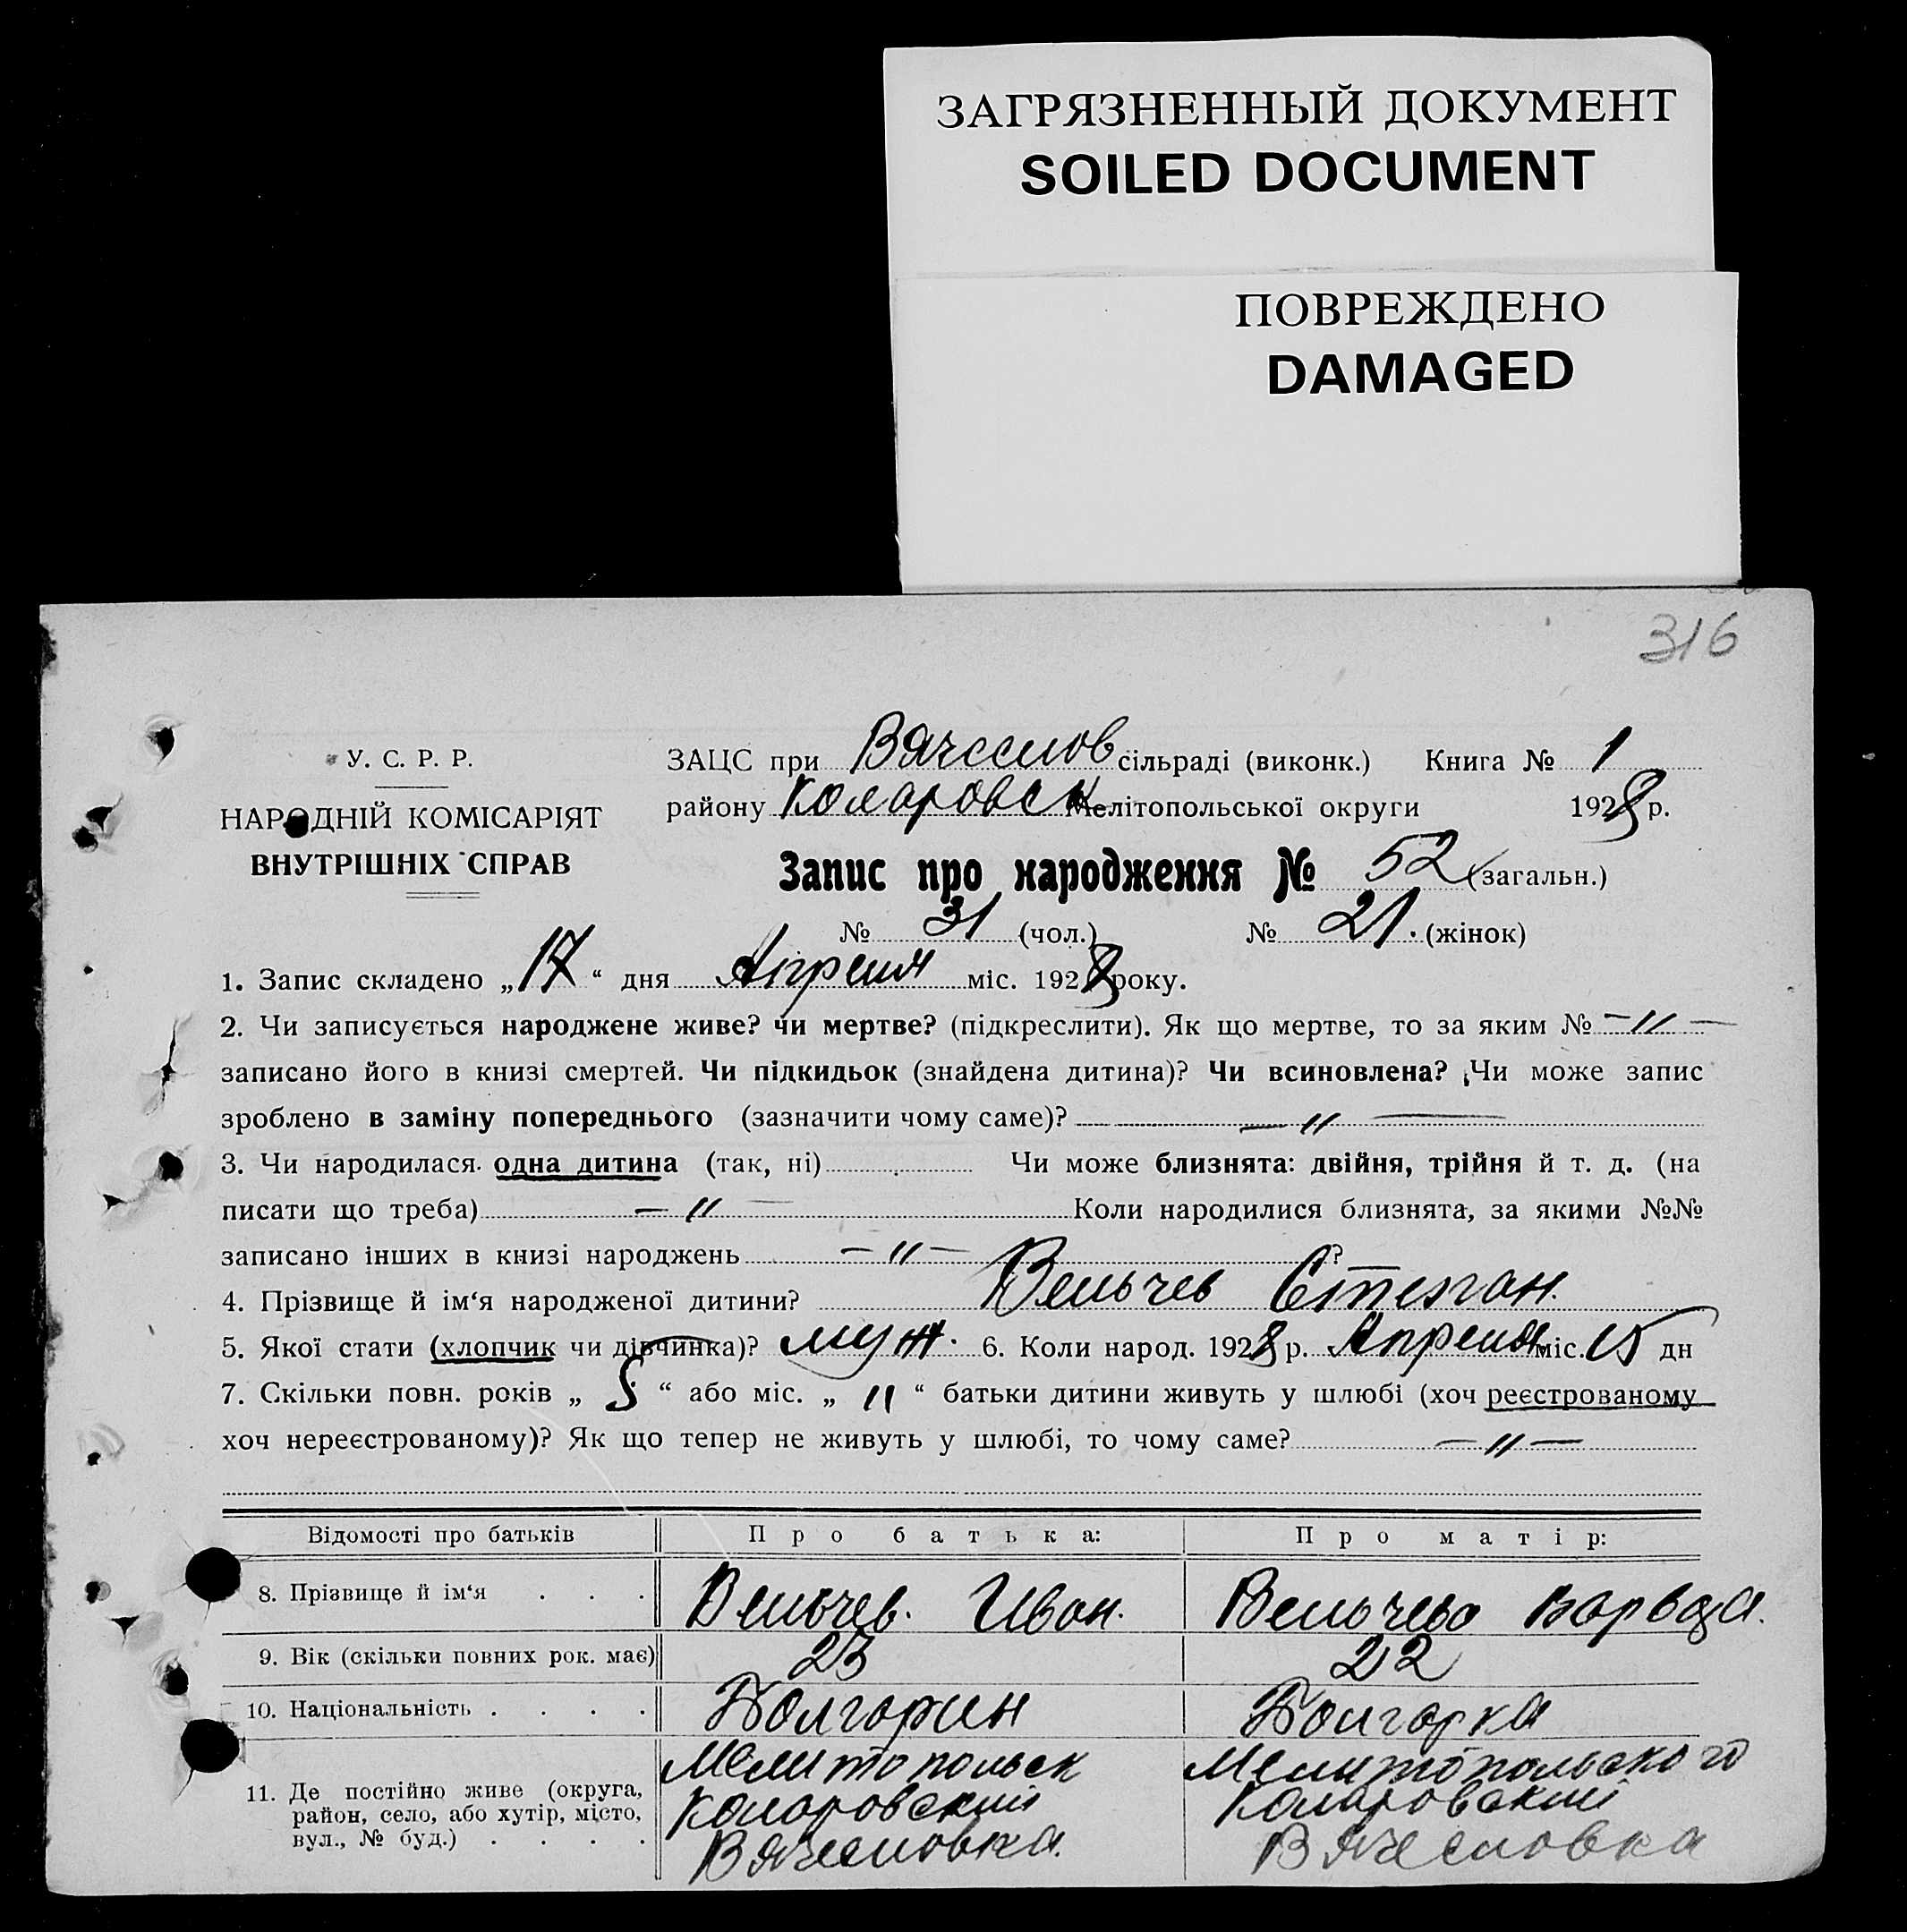 ЗАГРЯЗНЕННЫЙ ДОКУМЕНТ
SOILED DOCUMENT
ПОВРЕЖДЕНО
DAMAGED
316
У. С. Р. Р.
НАРОДНІЙ КОМІСАРІЯТ
ВНУТРІШНІХ СПРАВ
ЗАЦС при Вячеслов сільраді (виконк.) Книга № 1
району Коларовск Мелітопольської округи 1928 р.
Запис про народження № 52 (загальн.)
№ 31 (чол.) № 21. (жінок)
1. Запис складено „17“ дня Апреля міс. 1928 року.
2. Чи записується народжене живе? чи мертве? (підкреслити). Як що мертве, то за яким № —〃—
записано його в книзі смертей. Чи підкидьок (знайдена дитина)? Чи всиновлена? Чи може запис
зроблено в заміну попереднього (зазначити чому саме)? —〃—
3. Чи народилася одна дитина (так, ні) Чи може близнята: двійня, трійня й т. д. (на
писати що треба) —〃— Коли народилися близнята, за якими №№
записано інших в книзі народжень —〃— ?
4. Прізвище й ім‘я народженої дитини? Вельчев Степан.
5. Якої стати (хлопчик чи дівчинка)? муж. 6. Коли народ. 1928 р. Апреля міс. 15 дн
7. Скільки повн. років „ 5 “ або міс. „ 〃 “ батьки дитини живуть у шлюбі (хоч реєстрованому
хоч нереєстрованому)? Як що тепер не живуть у шлюбі, то чому саме? —〃—
Відомості про батьків Про батька: Про матір:
8. Прізвище й ім‘я . . . Вельчев. Иван. Вельчева Варвара.
9. Вік (скільки повних рок. має) 23 22
10. Національність . . . . Болгарин Болгарка
11. Де постійно живе (округа, Мелитопольск Мелитопольского
район, село, або хутір, місто, Коларовский Коларовский
вул., № буд.) . . . . Вячесловка. Вячесловка